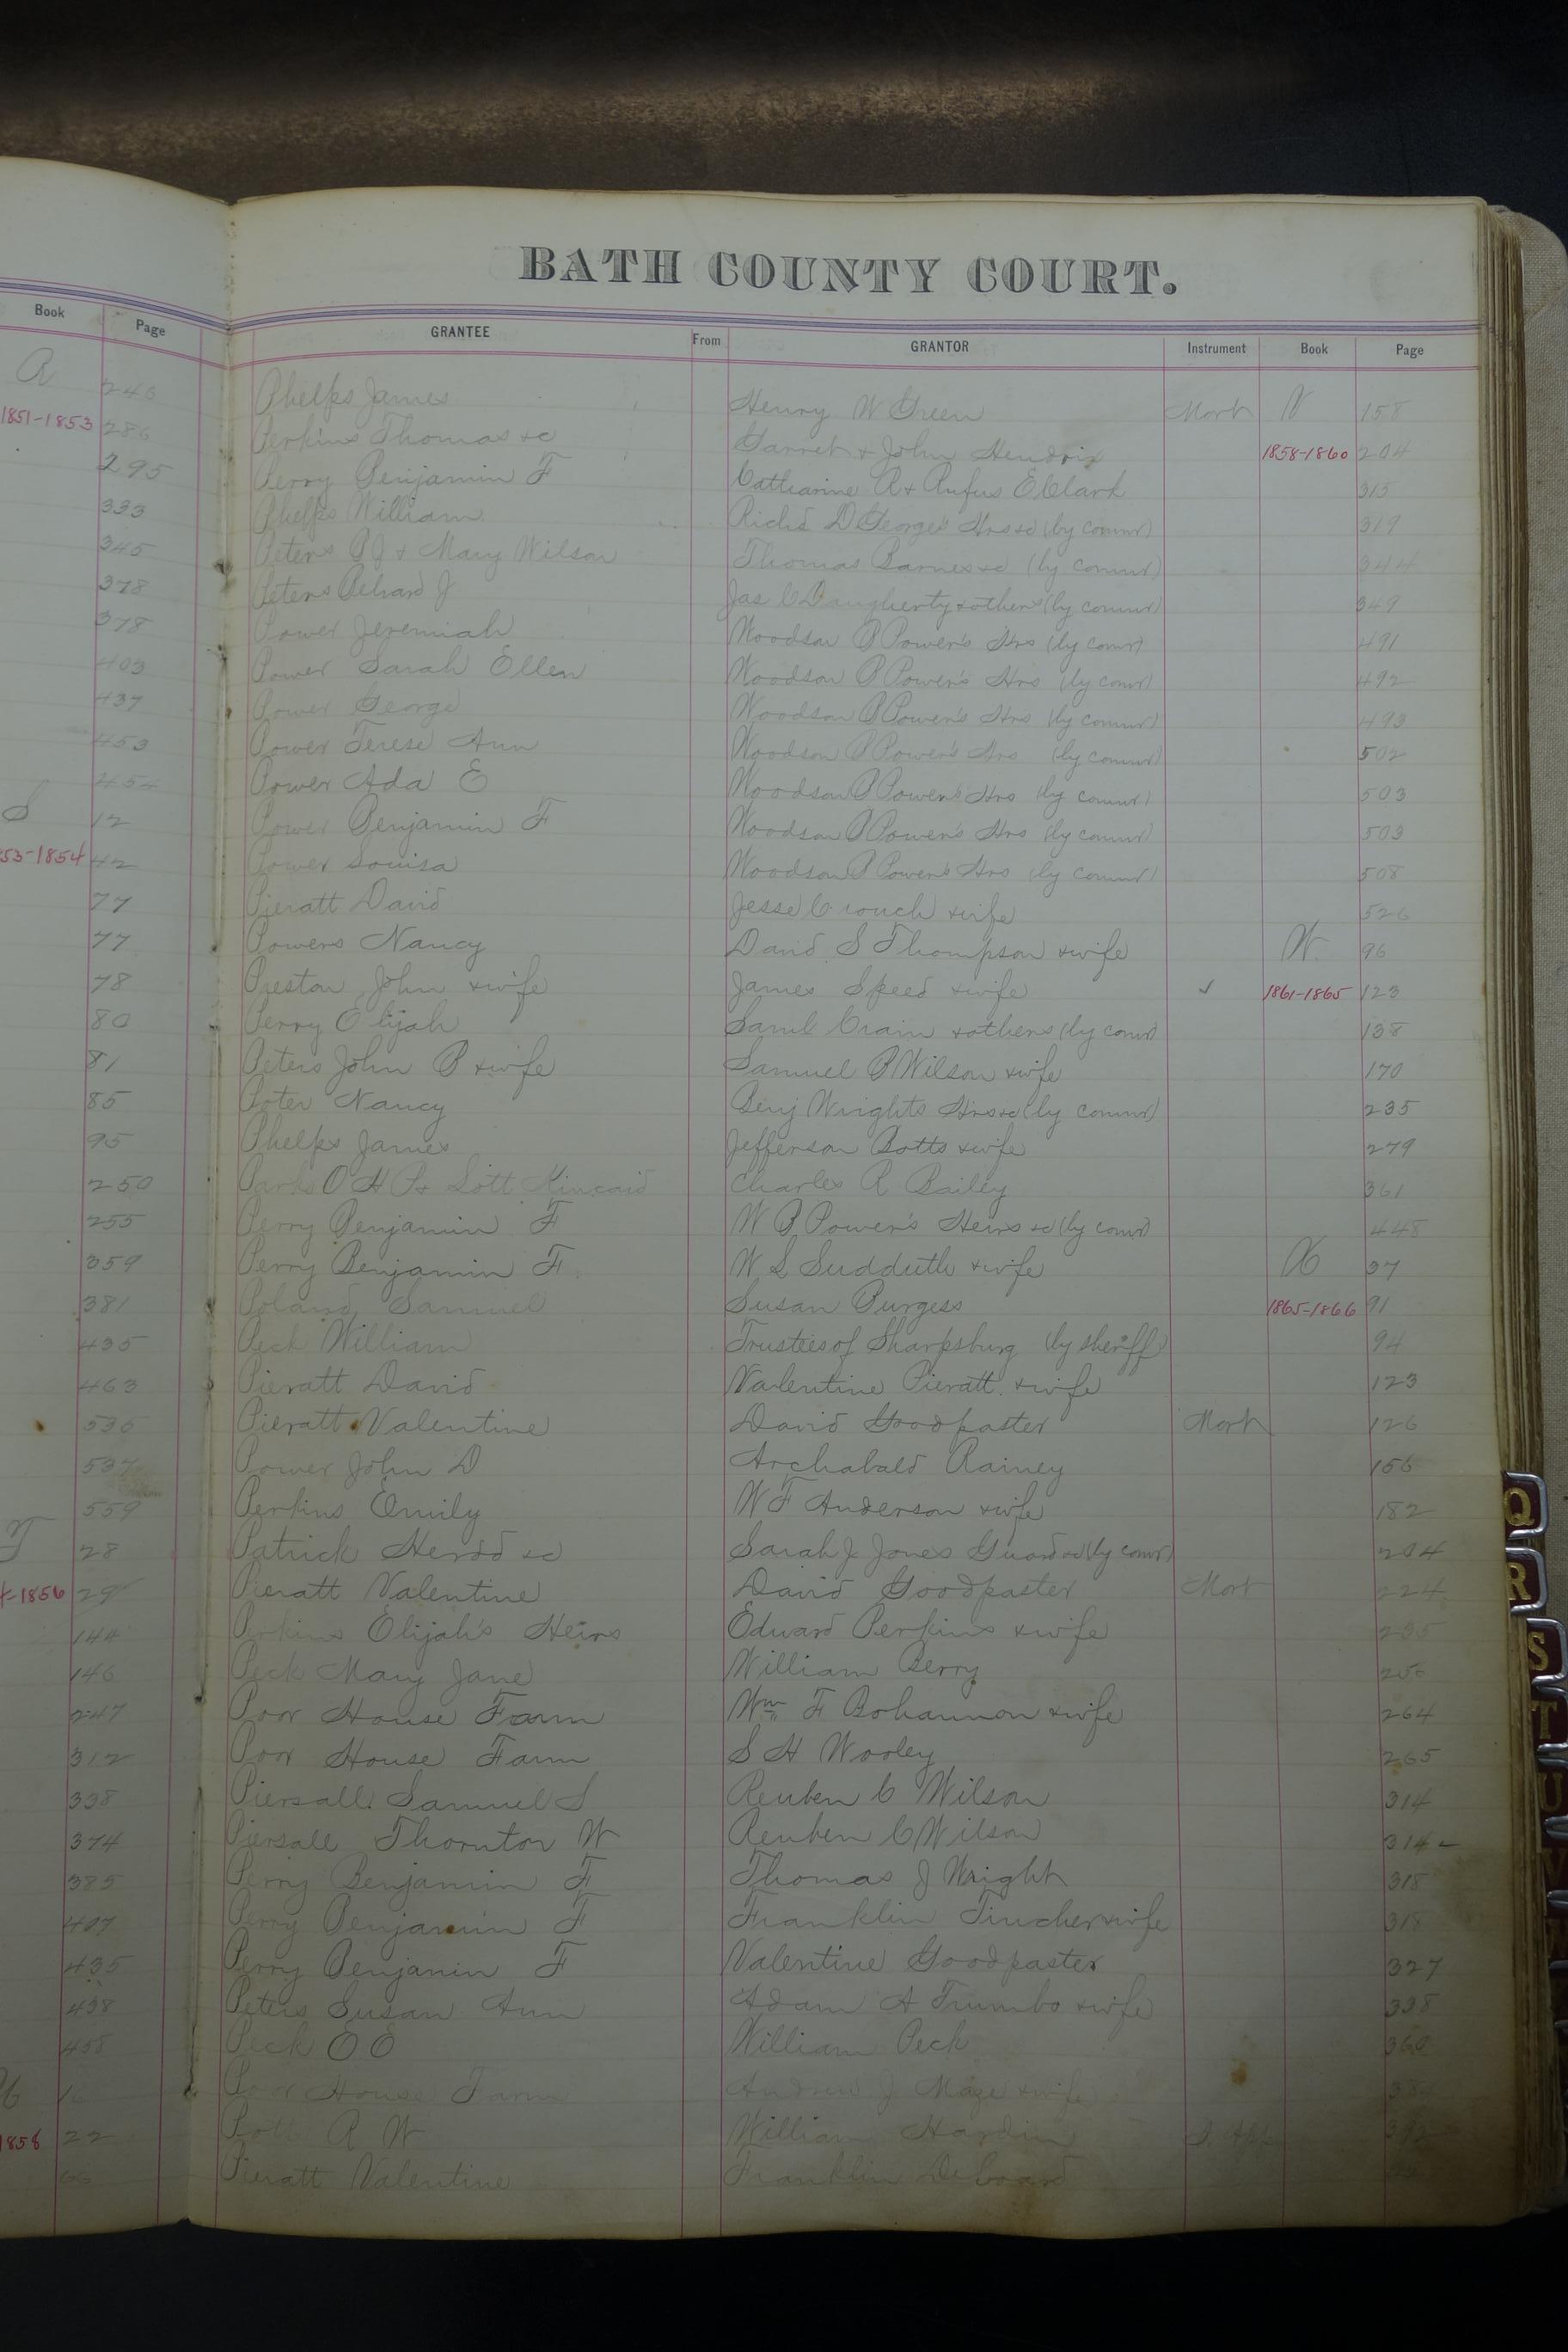 BATH COUNTY COURT.
Book Page
GRANTEE From GRANTOR Instrument Book Page
246
1851-1853 286
295
333
345
378
378
403
437
453
454
S 12
53-1854 42
77
77
78
80
81
85
95
250
255
359
381
435
463
536
537
559
28
-1856 29
144
146
247
312
338
374
385
407
435
438
458
1858 22
Phelps James Henry W Green Mort V 158
Perkins Thomas &c Garret & John Hendrix 1858-1860 204
Perry Benjamin F Catharine R & Rufus E Clark 315
Phelps William Richd D George's Hrs &c (by commr) 319
Peters B J & Mary Wilson Thomas Barnes &c (by commr) 344
Peters J Jas C Daugherty & others (by commr) 349
Power Jeremiah Woodson B Power's Hrs (by comr) 491
Power Sarah Ellen Woodson B Power's Hrs (by comr) 492
Power George Woodson B Power's Hrs (by commr) 493
Power Terese Ann Woodson B Power's Hrs (by commr) 502
Power Ada E Woodson B Power's Hrs (by commr) 503
Power Benjamin F Woodson B Power's Hrs (by commr) 503
Power Louisa Woodson B Power's Hrs (by commr) 508
Pieratt David Jesse Crouch & wife 526
Powers Nancy David S Thompson & wife W. 96
Preston John & wife James Speed & wife 1861-1865 123
Perry Elijah Saml Crain & others (by comr) 138
Peters John B & wife Samuel B Wilson & wife 170
Poter Nancy Benj Wrights Hrs &c (by commr) 235
Phelps James Jefferson Botts & wife 279
Parks O H P & Lott Kincaid Charles R Bailey 361
Perry Benjamin F W B Power's Heirs &c (by comr) 448
Perry Benjamin F. W S Sudduth & wife X 37
Poland Samuel Susan Burgess 1865-1866 91
Peck William Trustees of Sharpsburg (by sheriff) 94
Pieratt David Valentine Pieratt & wife 123
Pieratt Valentine David Goodpaster Mort 126
Power John D Archabald Rainey 156
Perkins Emily W F Anderson & wife 182
Patrick Herdd &c Sarah J Jones Guard &c (by comr) 204
Pieratt Valentine David Goodpaster Mort 224
Perkins Elijah's Heirs Edward Perkins & wife 235
Peck Mary Jane William Berry 250
Poor House Farm Wm F Bohannon & wife 264
Poor House Farm S H Wooley 265
Piersall Samuel S Reuben C Wilson 314
Piersall Thornton W Reuben C Wilson 314
Perry Benjamin F Thomas J Wright 318
Perry Benjamin F Franklin Tincher & wife 318
Perry Benjamin F Valentine Goodpaster 327
Peters Susan Ann Adam A Trumbo & wife 338
Peck E E William Peck 360
Poor House Farm Andrew J Maze & wife
R W William Hardin
Pieratt Valentine Franklin Deboard
Q
R
S
T
U
V